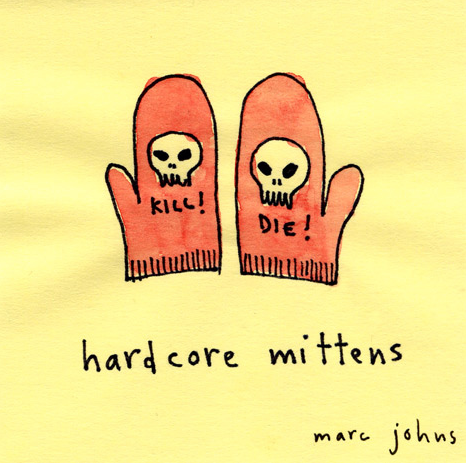 KILL!
DIE!
hardcore mittens
marc johns